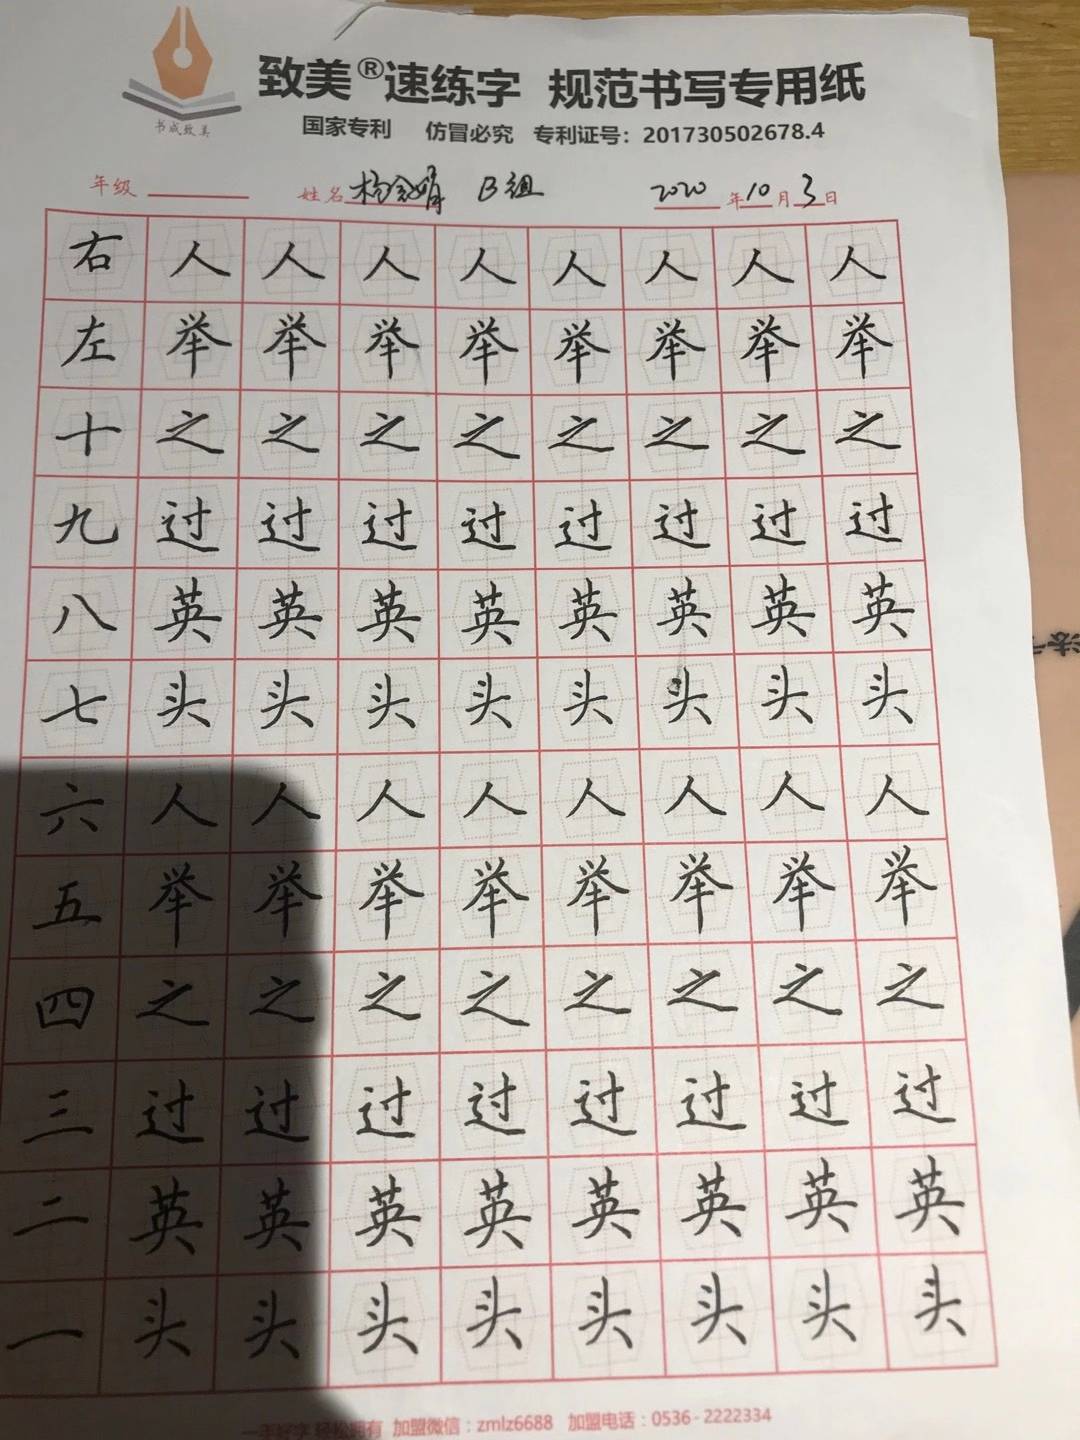 致美®速练字 规范书写专用纸
书成致美
国家专利 仿冒必究 专利证号：201730502678.4
年级 姓名 B组 2020年10月3日
右人人人人人人人人
左举举举举举举举举
十之之之之之之之之
九过过过过过过过过
八英英英英英英英英
七头头头头头头头头
六人人人人人人人人
五举举举举举举举举
四之之之之之之之之
三过过过过过过过过
二英英英英英英英英
一头头头头头头头头
一手好字 轻松拥有 加盟微信：zmlz6688 加盟电话：0536-2222334